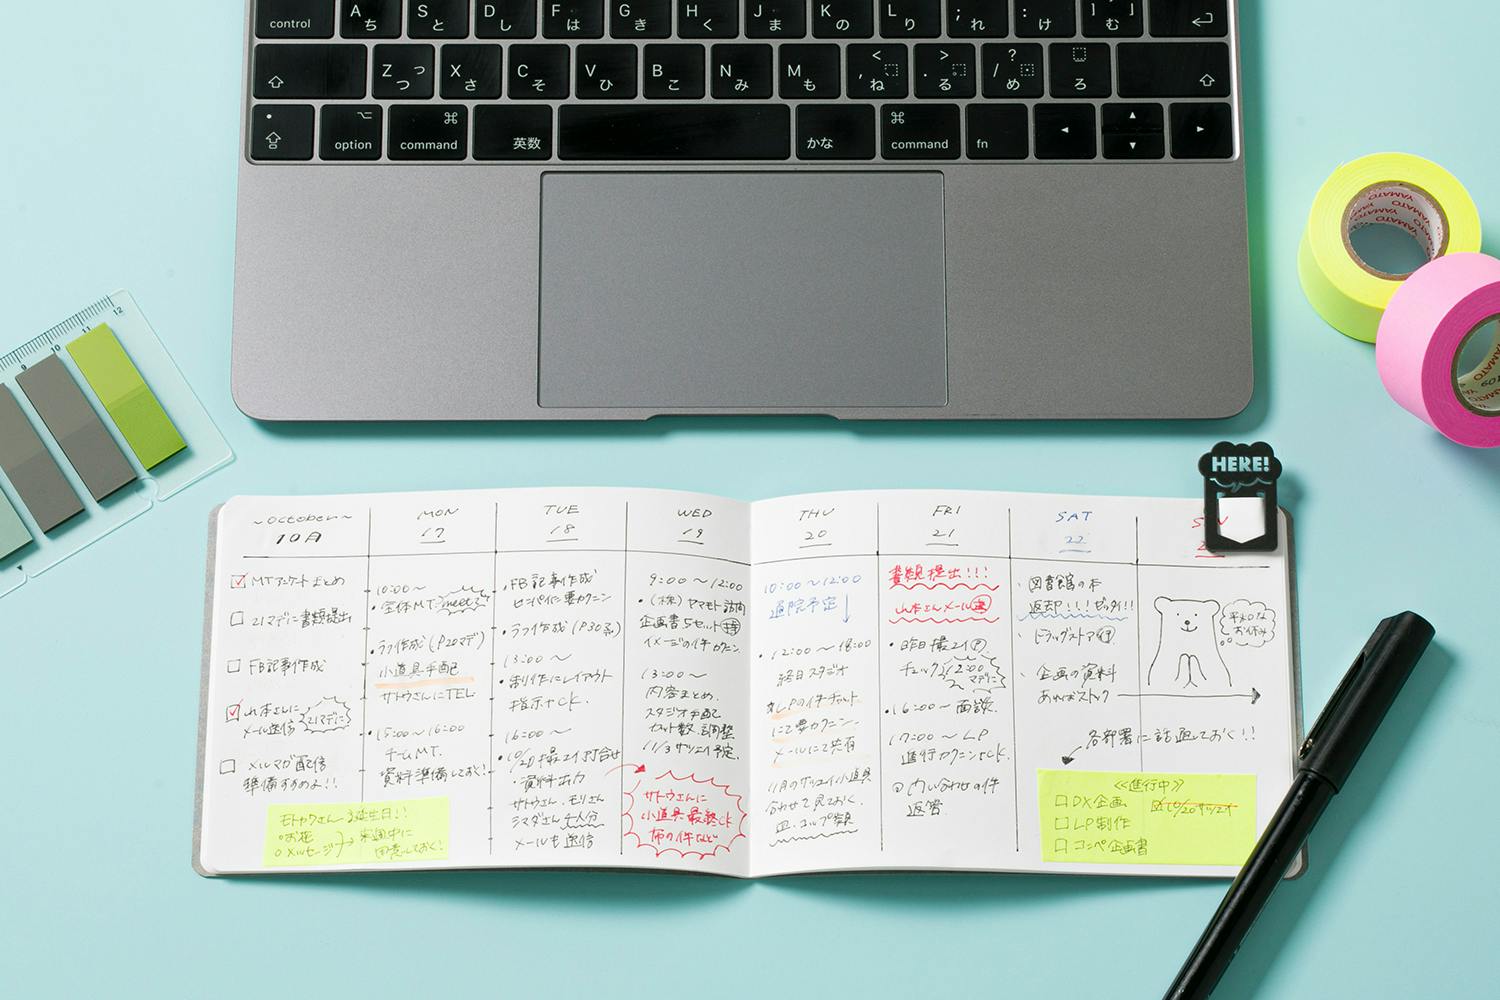 control
A ち
S と
D し
F は
G き
H く
J ま
K の
L り
; れ
: け
] む
Z つ っ
X さ
C そ
V ひ
B こ
N み
M も
< , ね
> . る
? / め
ろ
option
command
英数
かな
command
fn
12
11
10
9
YAMATO
YAMATO
HERE!
~October~
10月
MON
17
TUE
18
WED
19
THU
20
FRI
21
SAT
22
MTアンケートまとめ
21マデに書類提出
FB記事作成
山本さんに
メール送信
21マデに
メルマガ配信
準備すすめよ!!
お花
メッセージ
来週中に
用意しておく!
10:00~
・全体MT.
ラフ作成(P20マデ)
小道具手配
サトウさんにTEL
・15:00~16:00
チームMT.
資料準備しておく!
・FB記事作成
センパイに要カクニン
・ラフ作成
13:00~
・制作にレイアウト
指示+CK.
16:00~
・資料出力
サトウさん、モリさん
シマダさん
メールも送信
9:00~12:00
・(株)ヤマモト訪問
企画書5セット
イメージの件カクニン
13:00~
内容まとめ.
スタジオ手配
カット数調整
サトウさんに
小道具最終CK
柿の件など
10:00~12:00
通院予定
・12:00~18:00
LPの件チャット
にて要カクニン
メールにて共有
合わせて見ておく
書類提出!!!
山本さんメール
チェック
12:00
マデに
・16:00~面談.
17:00~LP
進行カクニン+CK.
問い合わせの件
返答
図書館の本
返却!!!ゼッタイ!!
ドラッグストア
企画の資料
あればストック
平和な
お休み
各部署に話通しておく!!
≪進行中≫
DX企画
LP制作
コンペ企画書